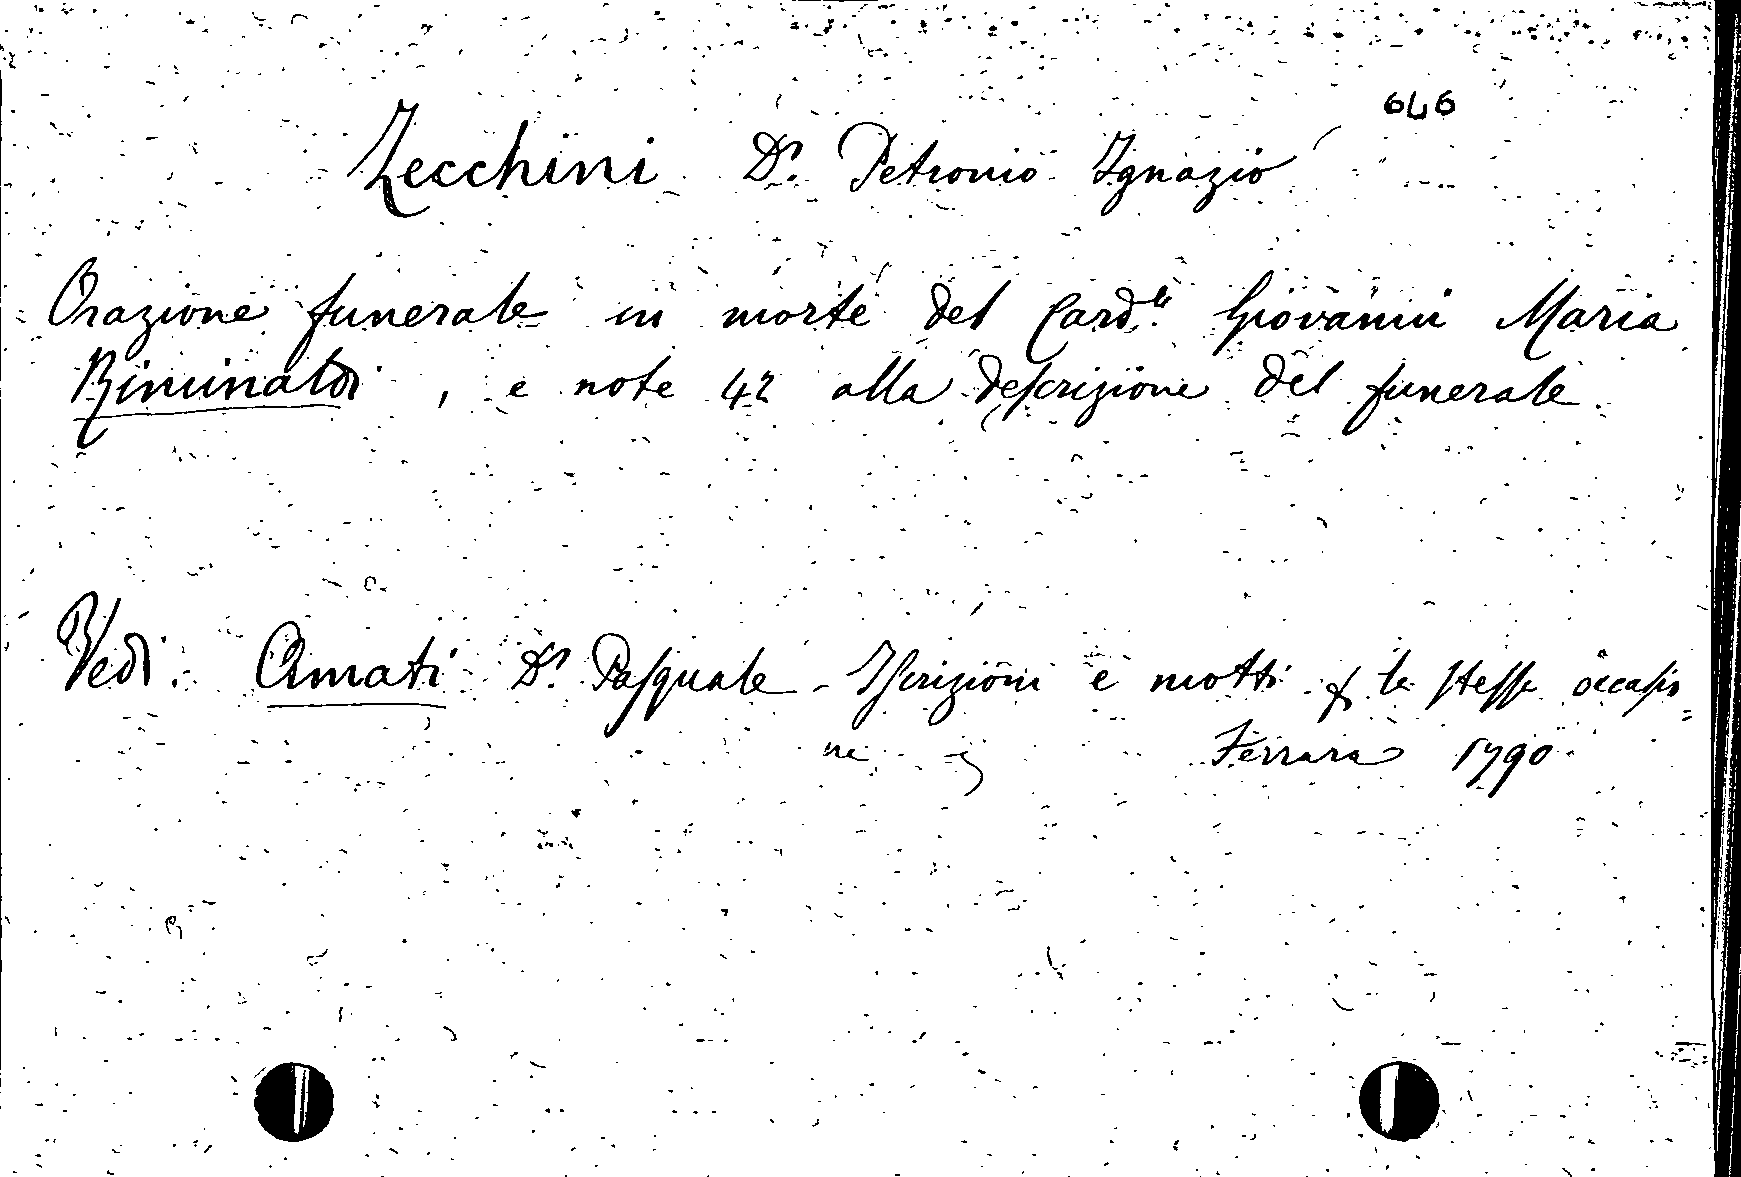 646
Zecchini Dr. Petronio Ignazio
Orazione funerale in morte del Card.le Giovanni Maria
Riminaldi, e note 42 alla descrizione del funerale.
Vedi: Amati Dr. Pasquale - Iscrizioni e motti p le stesse occasio=
ne Ferrara 1790